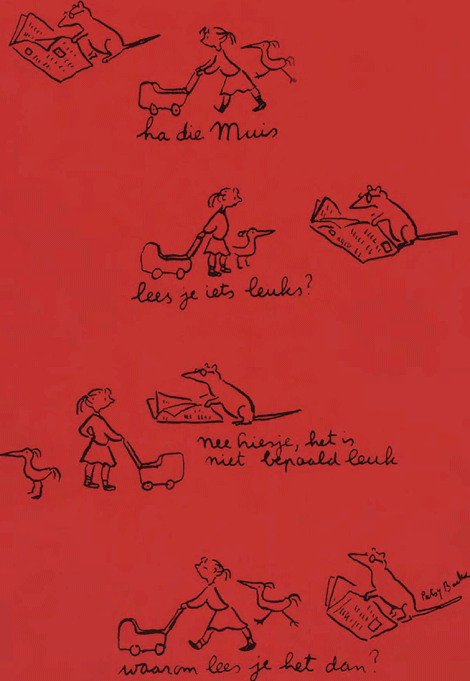 ha die Muis
lees je iets leuks?
nee Liesje, het is
niet bepaald leuk
Patsy
waarom lees je het dan?